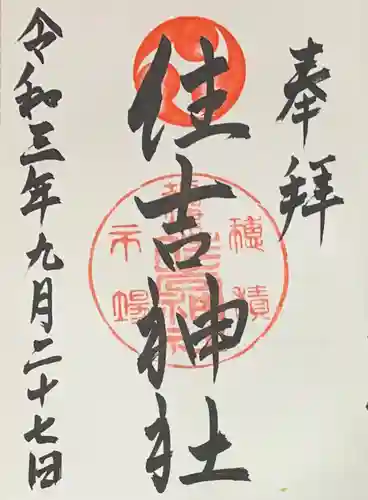 奉拝
住吉神社
令和三年九月二十七日
穂積
市場